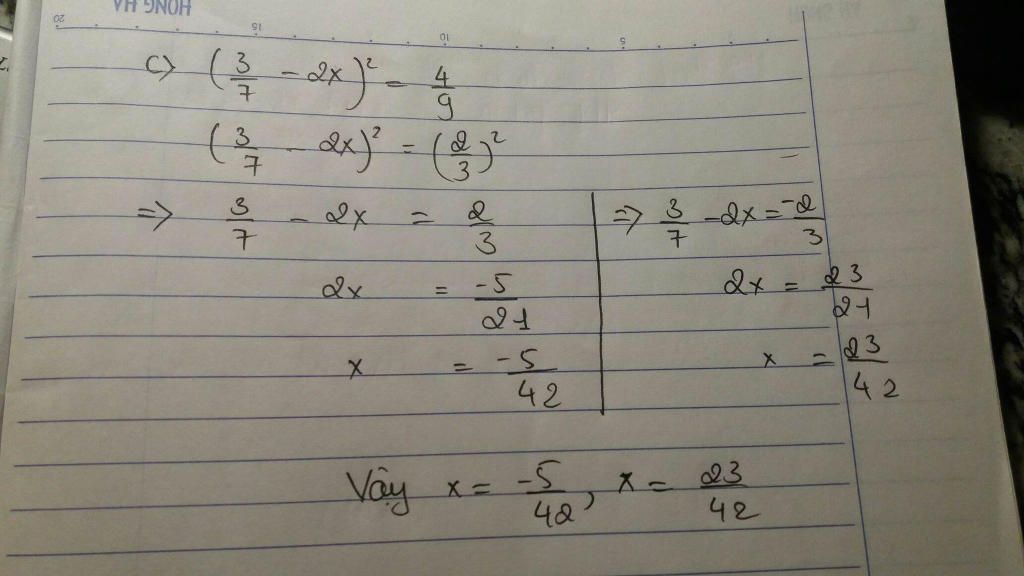 HONG HA
20 15 10 5
c) (3/7 - 2x)² = 4/9
(3/7 - 2x)² = (2/3)²
=> 3/7 - 2x = 2/3 | => 3/7 - 2x = -2/3
2x = -5/21 | 2x = 23/21
x = -5/42 | x = 23/42
Vậy x = -5/42, x = 23/42